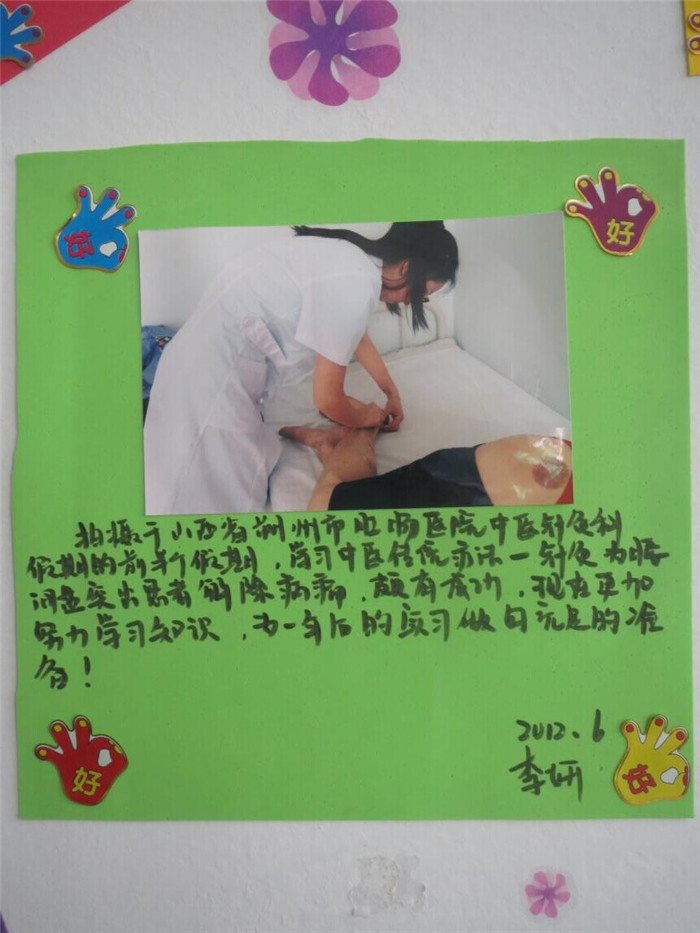 好
好
拍摄于山西省朔州市电厂医院中医针灸科
假期的前半个假期,学习中医传统疗法一针灸为腰
间盘突出患者解除病痛,颇有成功,现在更加
努力学习知识,为一年后的实习做自充足的准
备!
2012.6
李妍
好
好